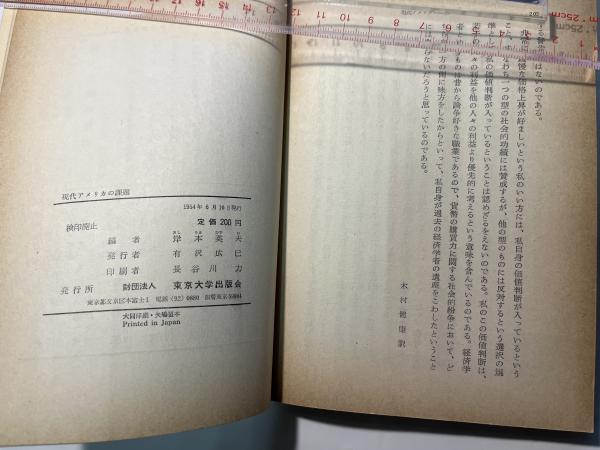 現代アメリカの課題
1954年6月10日発行
検印廃止
定価200円
編者 岸本英夫
発行者 有沢広巳
印刷者 長谷川力
発行所 財団法人 東京大学出版会
東京都文京区本富士1 電話(92)0680
大同印刷・矢嶋製本
Printed in Japan
はないのである。
な価格上昇が好ましいという私のいい方には、私自身の価値判断が入っているという
一つの型の社会的功績には賛成するが、他の型のものには反対するという選択の
私の価値判断が入っているということは認めざるをえないのである。私のこの価値判断は、
々の利益を他の人々の利益より優先的に考えるという意味を含んでいるのである。経済学
ものは昔から論争好きな職業であるので、貨幣の購買力に関する社会的紛争において、ど
方の側に味方をしたからといって、私自身が過去の経済学者の遺産をこわしたということ
はならないだろうと思っているのである。
木村健康訳